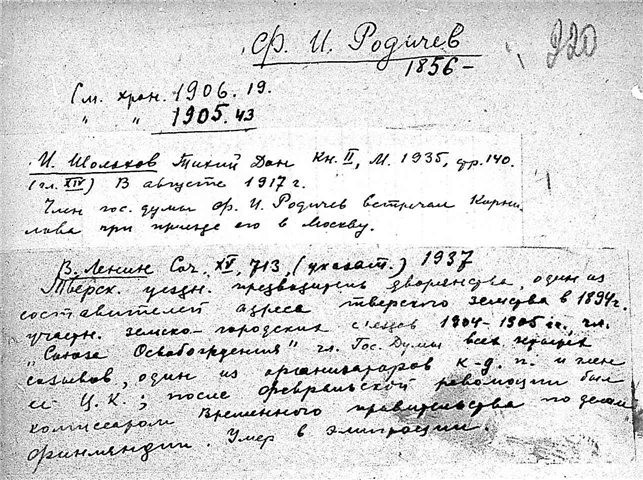 Ф. И. Родичев
220
1856 –
См. хрон. 1906. 19.
" " 1905. 43
И. Шолохов Тихий Дон Кн. II, М. 1935, стр. 140.
(гл. XIV) В августе 1917 г.
Член гос. думы Ф. И. Родичев встречал Корни-
лова при приезде его в Москву.
В. Ленин Соч. XV, 713, (указат.) 1937
Тверск. уездн. предводитель дворянства, один из
составителей адреса тверского земства в 1894 г.
участн. земско-городских съездов 1904–1905 гг., чл.
"Союза Освобождения" чл. Гос. Думы всех
созывов, один из организаторов к-д. п. и член
её Ц. К.; после февральской революции был
комиссаром Временного правительства по делам
Финляндии. Умер в эмиграции.